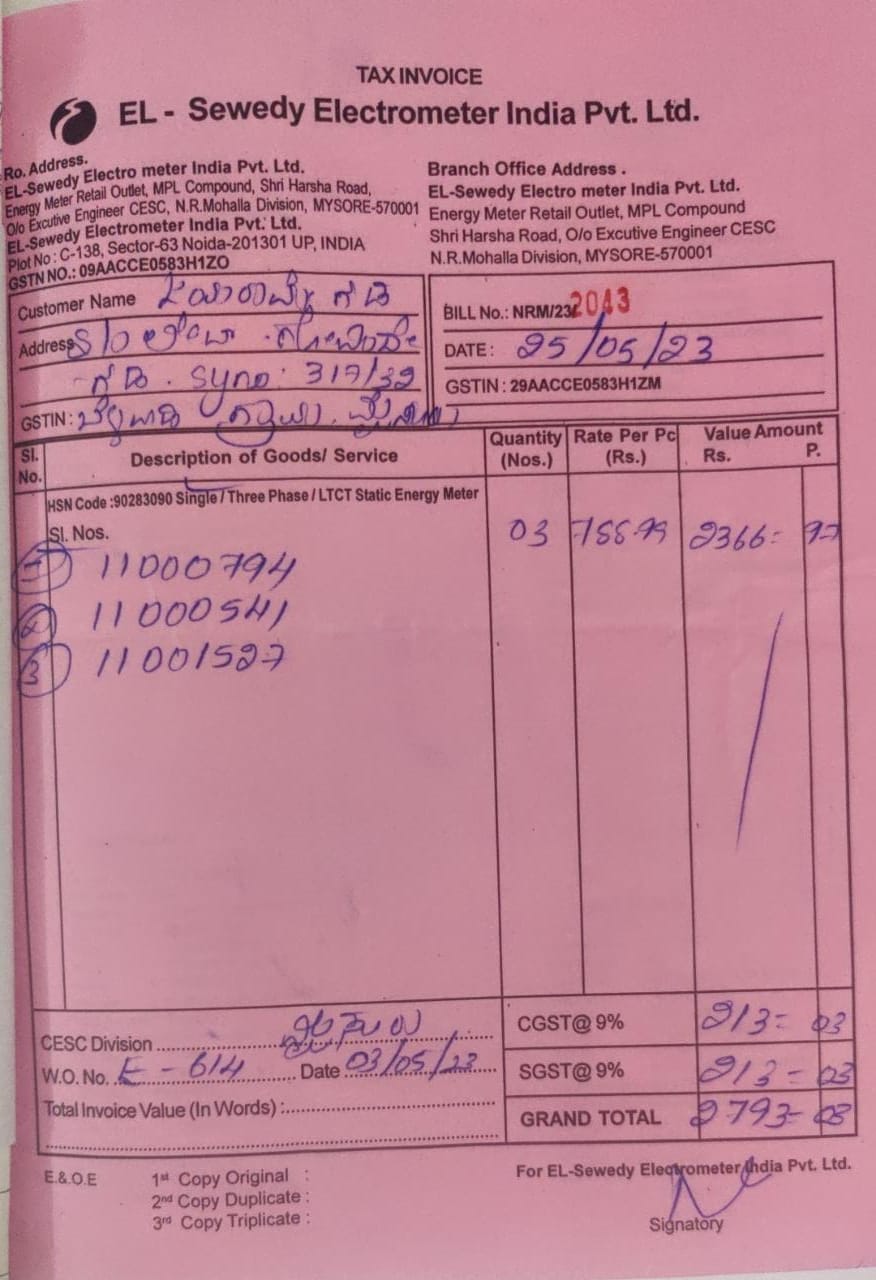 TAX INVOICE
EL - Sewedy Electrometer India Pvt. Ltd.
Ro. Address.
EL-Sewedy Electro meter India Pvt. Ltd.
Energy Meter Retail Outlet, MPL Compound, Shri Harsha Road,
O/o Excutive Engineer CESC, N.R.Mohalla Division, MYSORE-570001
EL-Sewedy Electrometer India Pvt. Ltd.
Plot No : C-138, Sector-63 Noida-201301 UP, INDIA
GSTN NO.: 09AACCE0583H1ZO
Branch Office Address .
EL-Sewedy Electro meter India Pvt. Ltd.
Energy Meter Retail Outlet, MPL Compound
Shri Harsha Road, O/o Excutive Engineer CESC
N.R.Mohalla Division, MYSORE-570001
Customer Name
Address S/o
Sy no: 317/39
GSTIN :
BILL No.: NRM/23/ 2043
DATE : 25/05/23
GSTIN : 29AACCE0583H1ZM
Sl. No. Description of Goods/ Service Quantity (Nos.) Rate Per Pc (Rs.) Value Amount Rs. P.
HSN Code :90283090 Single / Three Phase / LTCT Static Energy Meter
Sl. Nos. 03 788-99 2366= 97
1 11000794
2 11000541
3 11001527
CESC Division
W.O. No. E - 614 Date 03/05/23
Total Invoice Value (In Words) :
CGST@ 9% 213= 03
SGST@ 9% 213- 03
GRAND TOTAL 2793- 03
E.& O.E
1st Copy Original :
2nd Copy Duplicate :
3rd Copy Triplicate :
For EL-Sewedy Electrometer India Pvt. Ltd.
Signatory